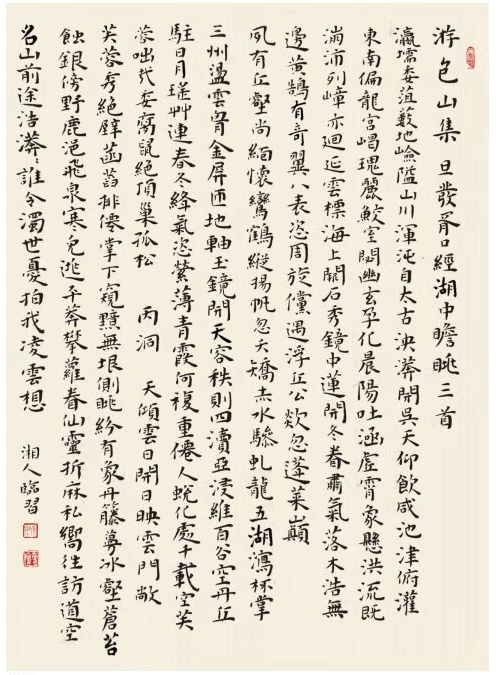 游包山集 旦發胥口經湖中瞻眺三首
瀛壖委菹藪地嶮隘山川渾沌自太古泱漭開吳天仰飲咸池津俯灌
東南偏龍宮嵑瑰麗鮫室閟幽玄孕化晨陽吐涵虛霄象懸洪流既
湍沛列嶂亦迴延雲標海上闕石秀鏡中蓮開冬眷肅氣落木浩無
邊黃鵠有奇翼八表恣周旋儻遇浮丘公欻忽蓬萊巔
夙有丘壑尚緬懷鸞鶴縱揚帆忽天矯赤水驂虬龍五湖瀉杯掌
三州盪雲胷金屏匝地軸玉鏡開天容秩則四瀆亞浸維百谷空丹丘
駐日月瑤艸連春冬絳氣恣縈薄青霞何複重僊人蛻化處千載空芙
蓉咄哉委腐鼠絕頂巢孤松 丙洞 天傾雲日開日映雲門敞
芙蓉秀絕壁菡萏排僊掌下窺黯無垠側眺紛有象丹籐冰壑蒼苔
蝕銀傍野鹿浥飛泉寒兔逃平莽攀蘿眷仙靈折麻私嚮往訪道空
名山前途浩漭〻誰令濁世憂拍我凌雲想 湘人臨習